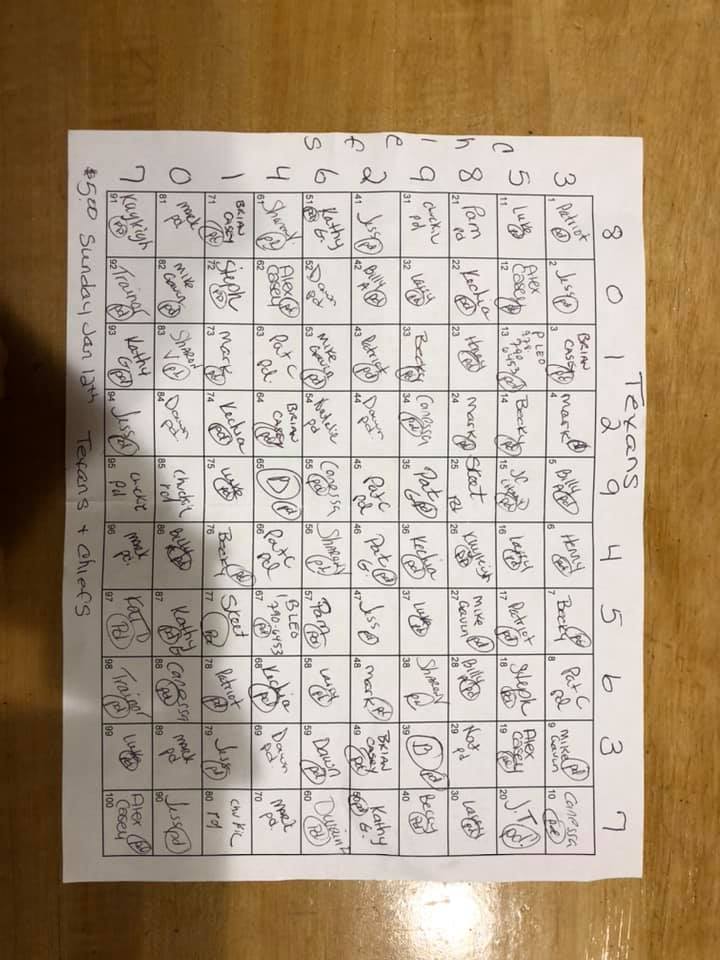 Texans
8 0 1 2 9 4 5 6 3 7
Chiefs
3
1 Patriot pd
2 Jess pd
3 BRIAN CASEY pd
4 Mark pd
5 Billy pd
6 Henny pd
7 Becky pd
8 Pat C pd
9 Mike Gavin pd
10 Canessa pd
5
11 Luke pd
12 Alex Casey pd
13 P LEO 790 6453 pd
14 Becky pd
15 pd
16 Larry pd
17 Patriot pd
18 Steph pd
19 Alex Casey pd
20 J.T pd
8
21 Pam pd
22 Kechia pd
23 pd
24 Mark pd
25 Skeet pd
26 Kayleigh pd
27 Mike Gavin pd
28 Billy pd
29 Nat pd
30 Larry pd
9
31 chuckie pd
32 Larry pd
33 Becky pd
34 Canessa pd
35 Pat G pd
36 Kechia pd
37 Luke pd
38 Sharon pd
39 D pd
40 Becky pd
2
41 Jess pd
42 Billy A pd
43 Patriot pd
44 Dawn pd
45 Pat C pd
46 Pat G. pd
47 Jess pd
48 Mark pd
49 BRIAN CASEY pd
50 Kathy G. pd
6
51 Kathy G. pd
52 Dawn pd
53 Mike Gavin pd
54 Natalie pd
55 Canessa pd
56 Sharon pd
57 Pam pd
58 Larry pd
59 Dawn pd
60 pd
4
61 Sharon pd
62 Alex Casey pd
63 Pat C pd
64 BRIAN CASEY pd
65 D pd
66 Pat C pd
67 LEO 790-6453 pd
68 Kechia pd
69 Dawn pd
70 Mark pd
1
71 BRIAN CASEY pd
72 Steph pd
73 Mark pd
74 Kechia pd
75 Luke pd
76 Becky pd
77 Skeet pd
78 Patriot pd
79 Jess pd
80 chuckie pd
0
81 Mark pd
82 Mike Gavin pd
83 Sharon V pd
84 Dawn pd
85 Chuckie pd
86 Billy pd
87 Kathy G pd
88 Canessa pd
89 Mark pd
90 Jess pd
7
91 Kayleigh pd
92 Trainor pd
93 Kathy G pd
94 Jess pd
95 chuckie pd
96 Mark pd
97 Kat D pd
98 Trainor pd
99 Luke pd
100 Alex Casey pd
$5.00 Sunday Jan 12th Texans + Chiefs